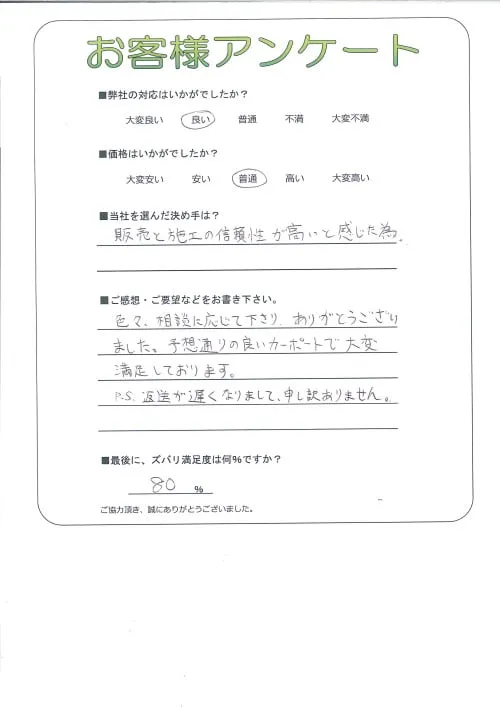 お客様アンケート
■弊社の対応はいかがでしたか？
大変良い 良い 普通 不満 大変不満
■価格はいかがでしたか？
大変安い 安い 普通 高い 大変高い
■当社を選んだ決め手は？
販売と施工の信頼性が高いと感じた為。
■ご感想・ご要望などをお書き下さい。
色々、相談に応じて下さり、ありがとうござい
ました。予想通りの良いカーポートで大変
満足しております。
P.S. 返送が遅くなりまして、申し訳ありません。
■最後に、ズバリ満足度は何%ですか？
80 %
ご協力頂き、誠にありがとうございました。